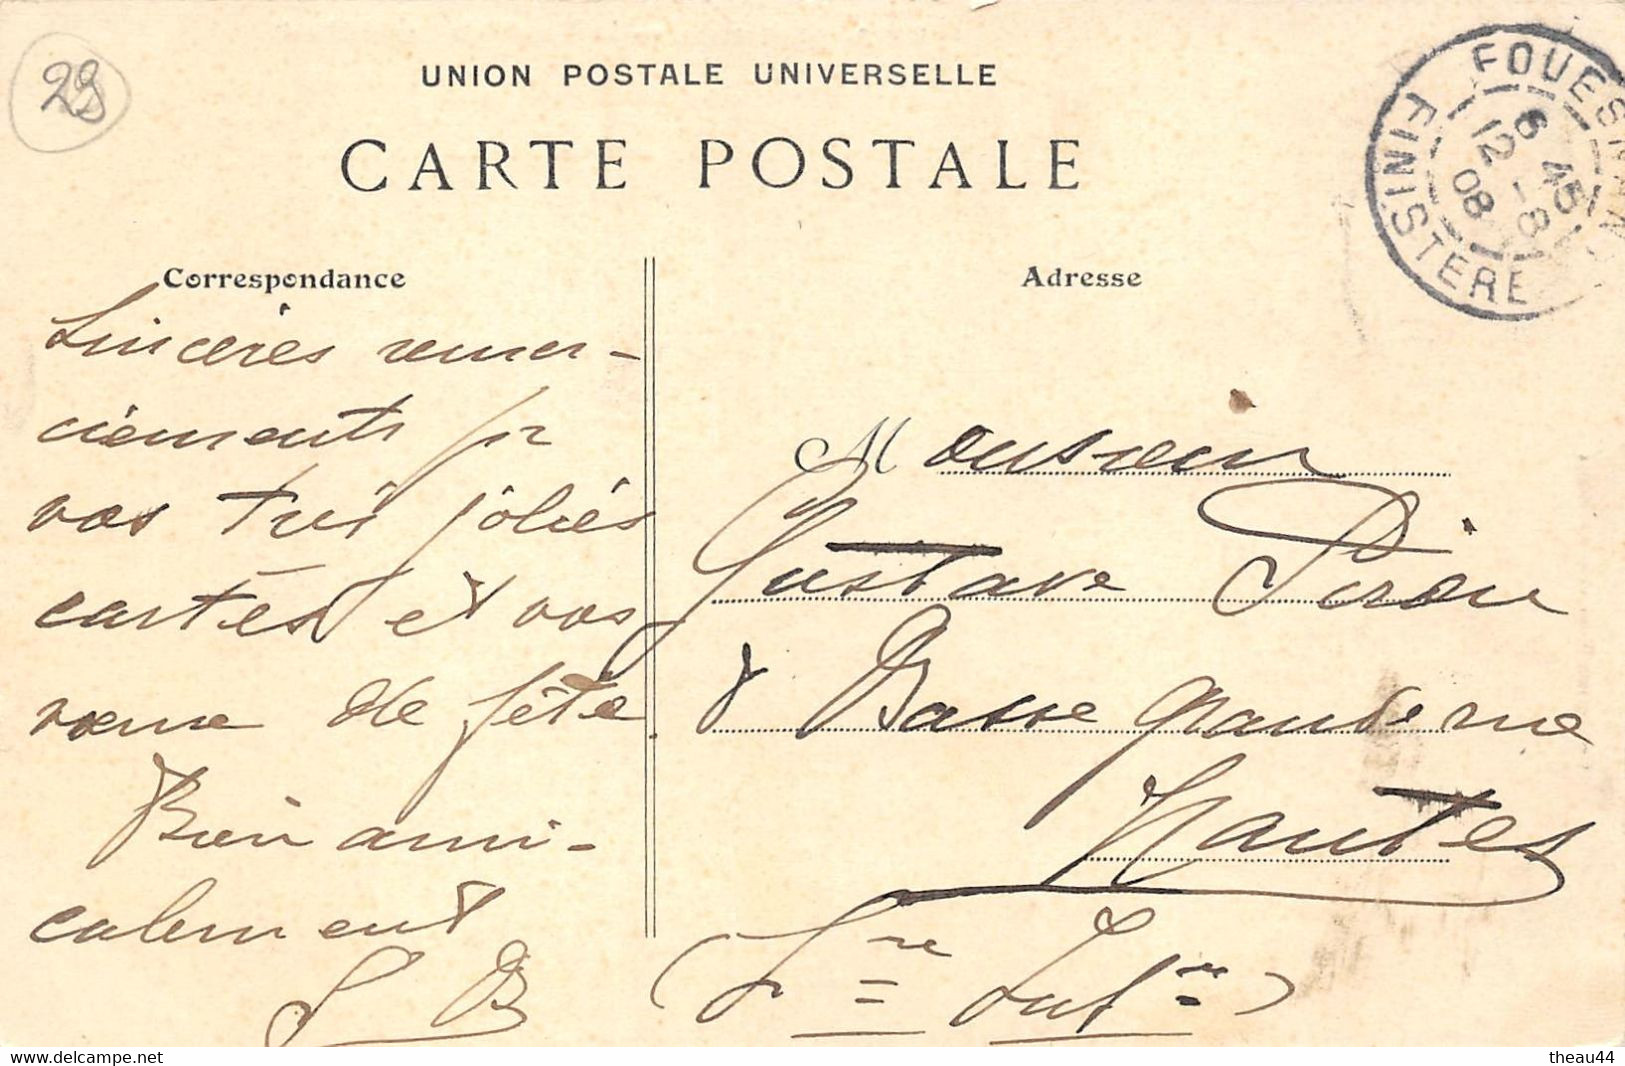 29
UNION POSTALE UNIVERSELLE
CARTE POSTALE
FOUESNANT
FINISTERE
6 45
12 -8
08
Correspondance
Sincères remer-
ciements pr
vos très jolies
cartes et vos
vœux de fête.
Bien ami-
calement
S B
Adresse
Monsieur
Gustave Pirou
8 Basse grande rue
Nantes
(Lre Infre)
delcampe.net
theau44